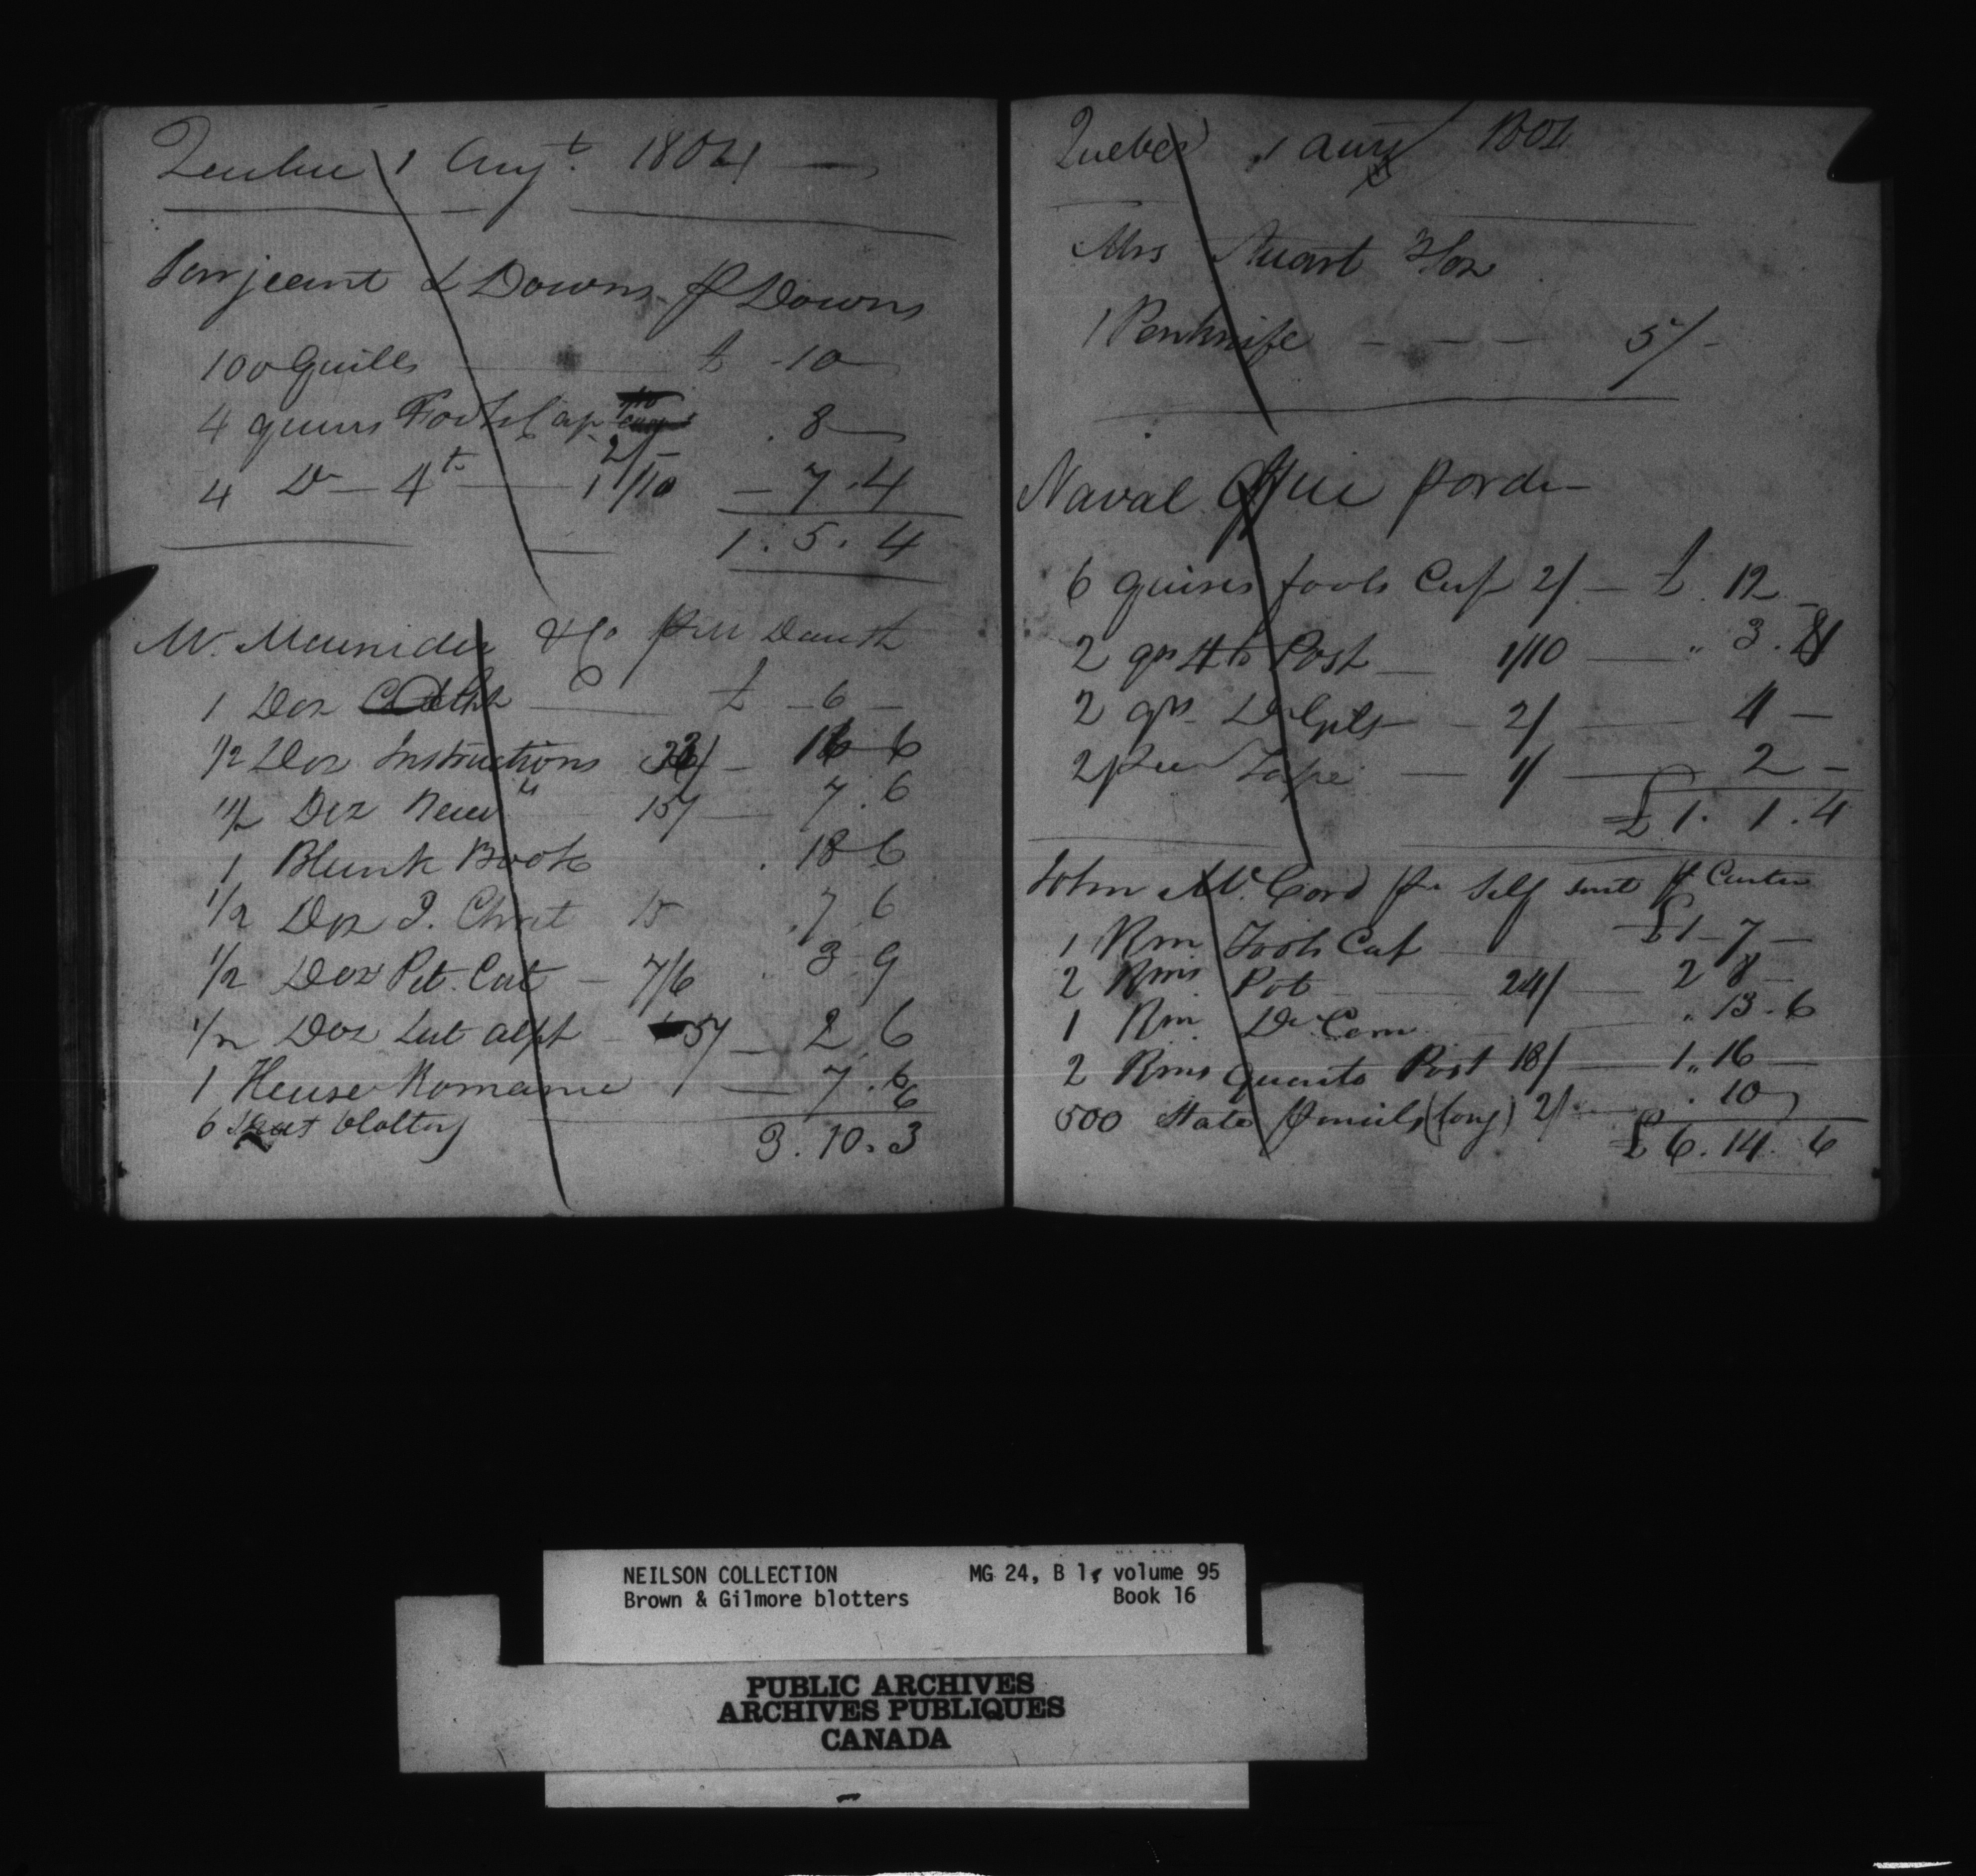 Quebec 1 Augt. 1804
Serjeant & Downs p Downs
100 Quills £ - 10 -
4 quires Foolscap 2/- . 8 -
4 Do - 4to 1/10 - 7 . 4
1 . 5 . 4
M. Meunider & Co per
1 Doz £ - 6 -
1/2 Doz Instructions 33/ - 16 6
1/2 Doz New " 15/ - 7 . 6
1 Blank Book . 18 6
1/2 Doz J. Christ 15 . 7 6
1/2 Doz Pet. Cat - 7/6 . 3 9
1/2 Doz Lat alpt - 5/ - 2 6
1 Heuse Romaine - 7 . 6
6 Sheet blottng 6
3 . 10 . 3
Quebec 1 Augt 1804
Mrs Stuart
1 Penknife - - - 5/-
Naval Office p order
6 quires fools Cap 2/ - £ . 12 -
2 qrs 4to Post - 1/10 - " 3 . 8
2 qrs Do Gilt - 2/ 4 -
2 Tape - 1/ - 2 -
£ 1 . 1 . 4
John Mc. Cord pr Self sent p Carter
1 Rm Fools Cap £1 - 7 -
2 Rms Pot 24/ - 2 8 -
1 Rm Do Com " 13 . 6
2 Rms Quarto Post 18/ - 1 " 16 -
500 Slate pencils (long) 2/ . 10
£ 6 . 14 . 6
NEILSON COLLECTION MG 24, B 1, volume 95
Brown & Gilmore blotters Book 16
PUBLIC ARCHIVES
ARCHIVES PUBLIQUES
CANADA